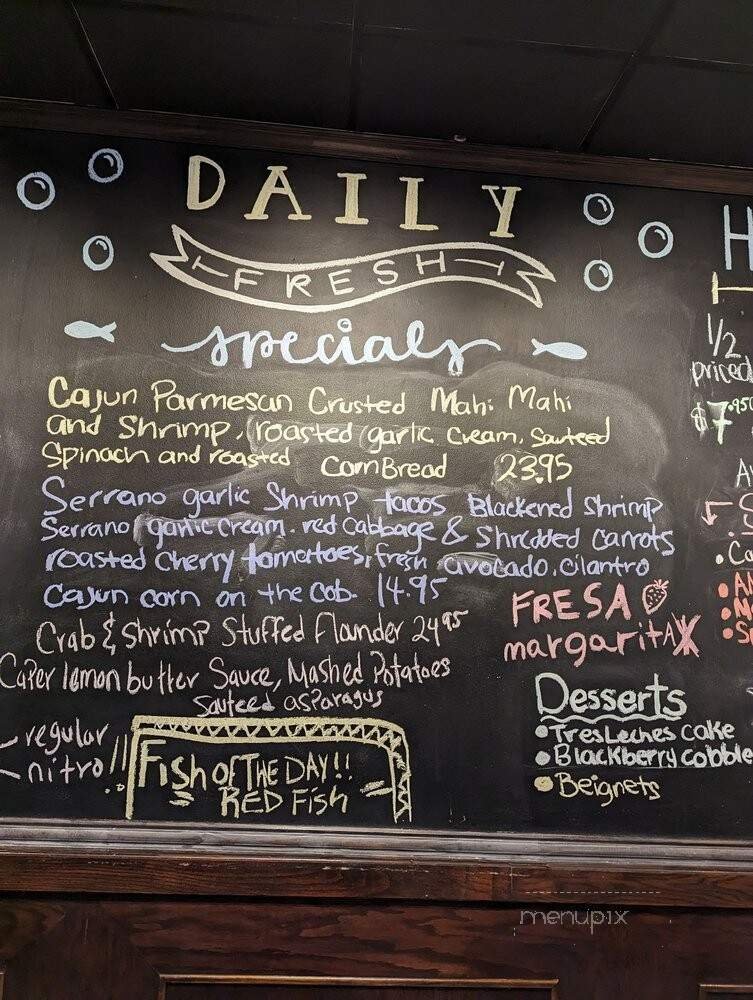 DAILY
FRESH
specials
Cajun Parmesan Crusted Mahi Mahi
and Shrimp, roasted garlic cream, Sauteed
Spinach and roasted Corn Bread 23.95
Serrano garlic Shrimp tacos Blackened Shrimp
Serrano garlic cream. red Cabbage & Shredded carrots
roasted Cherry tomatoes, fresh avocado, cilantro
Cajun corn on the cob. 14.95
Crab & Shrimp Stuffed Flounder 24.95
Caper lemon butter Sauce, Mashed Potatoes
Sauteed asparagus
- regular
- nitro!!
Fish OF THE DAY!!
RED Fish
FRESA
margarita
Desserts
• Tres Leches Cake
• Blackberry cobble
• Beignets
H
1/2
priced
$7.95
menupix